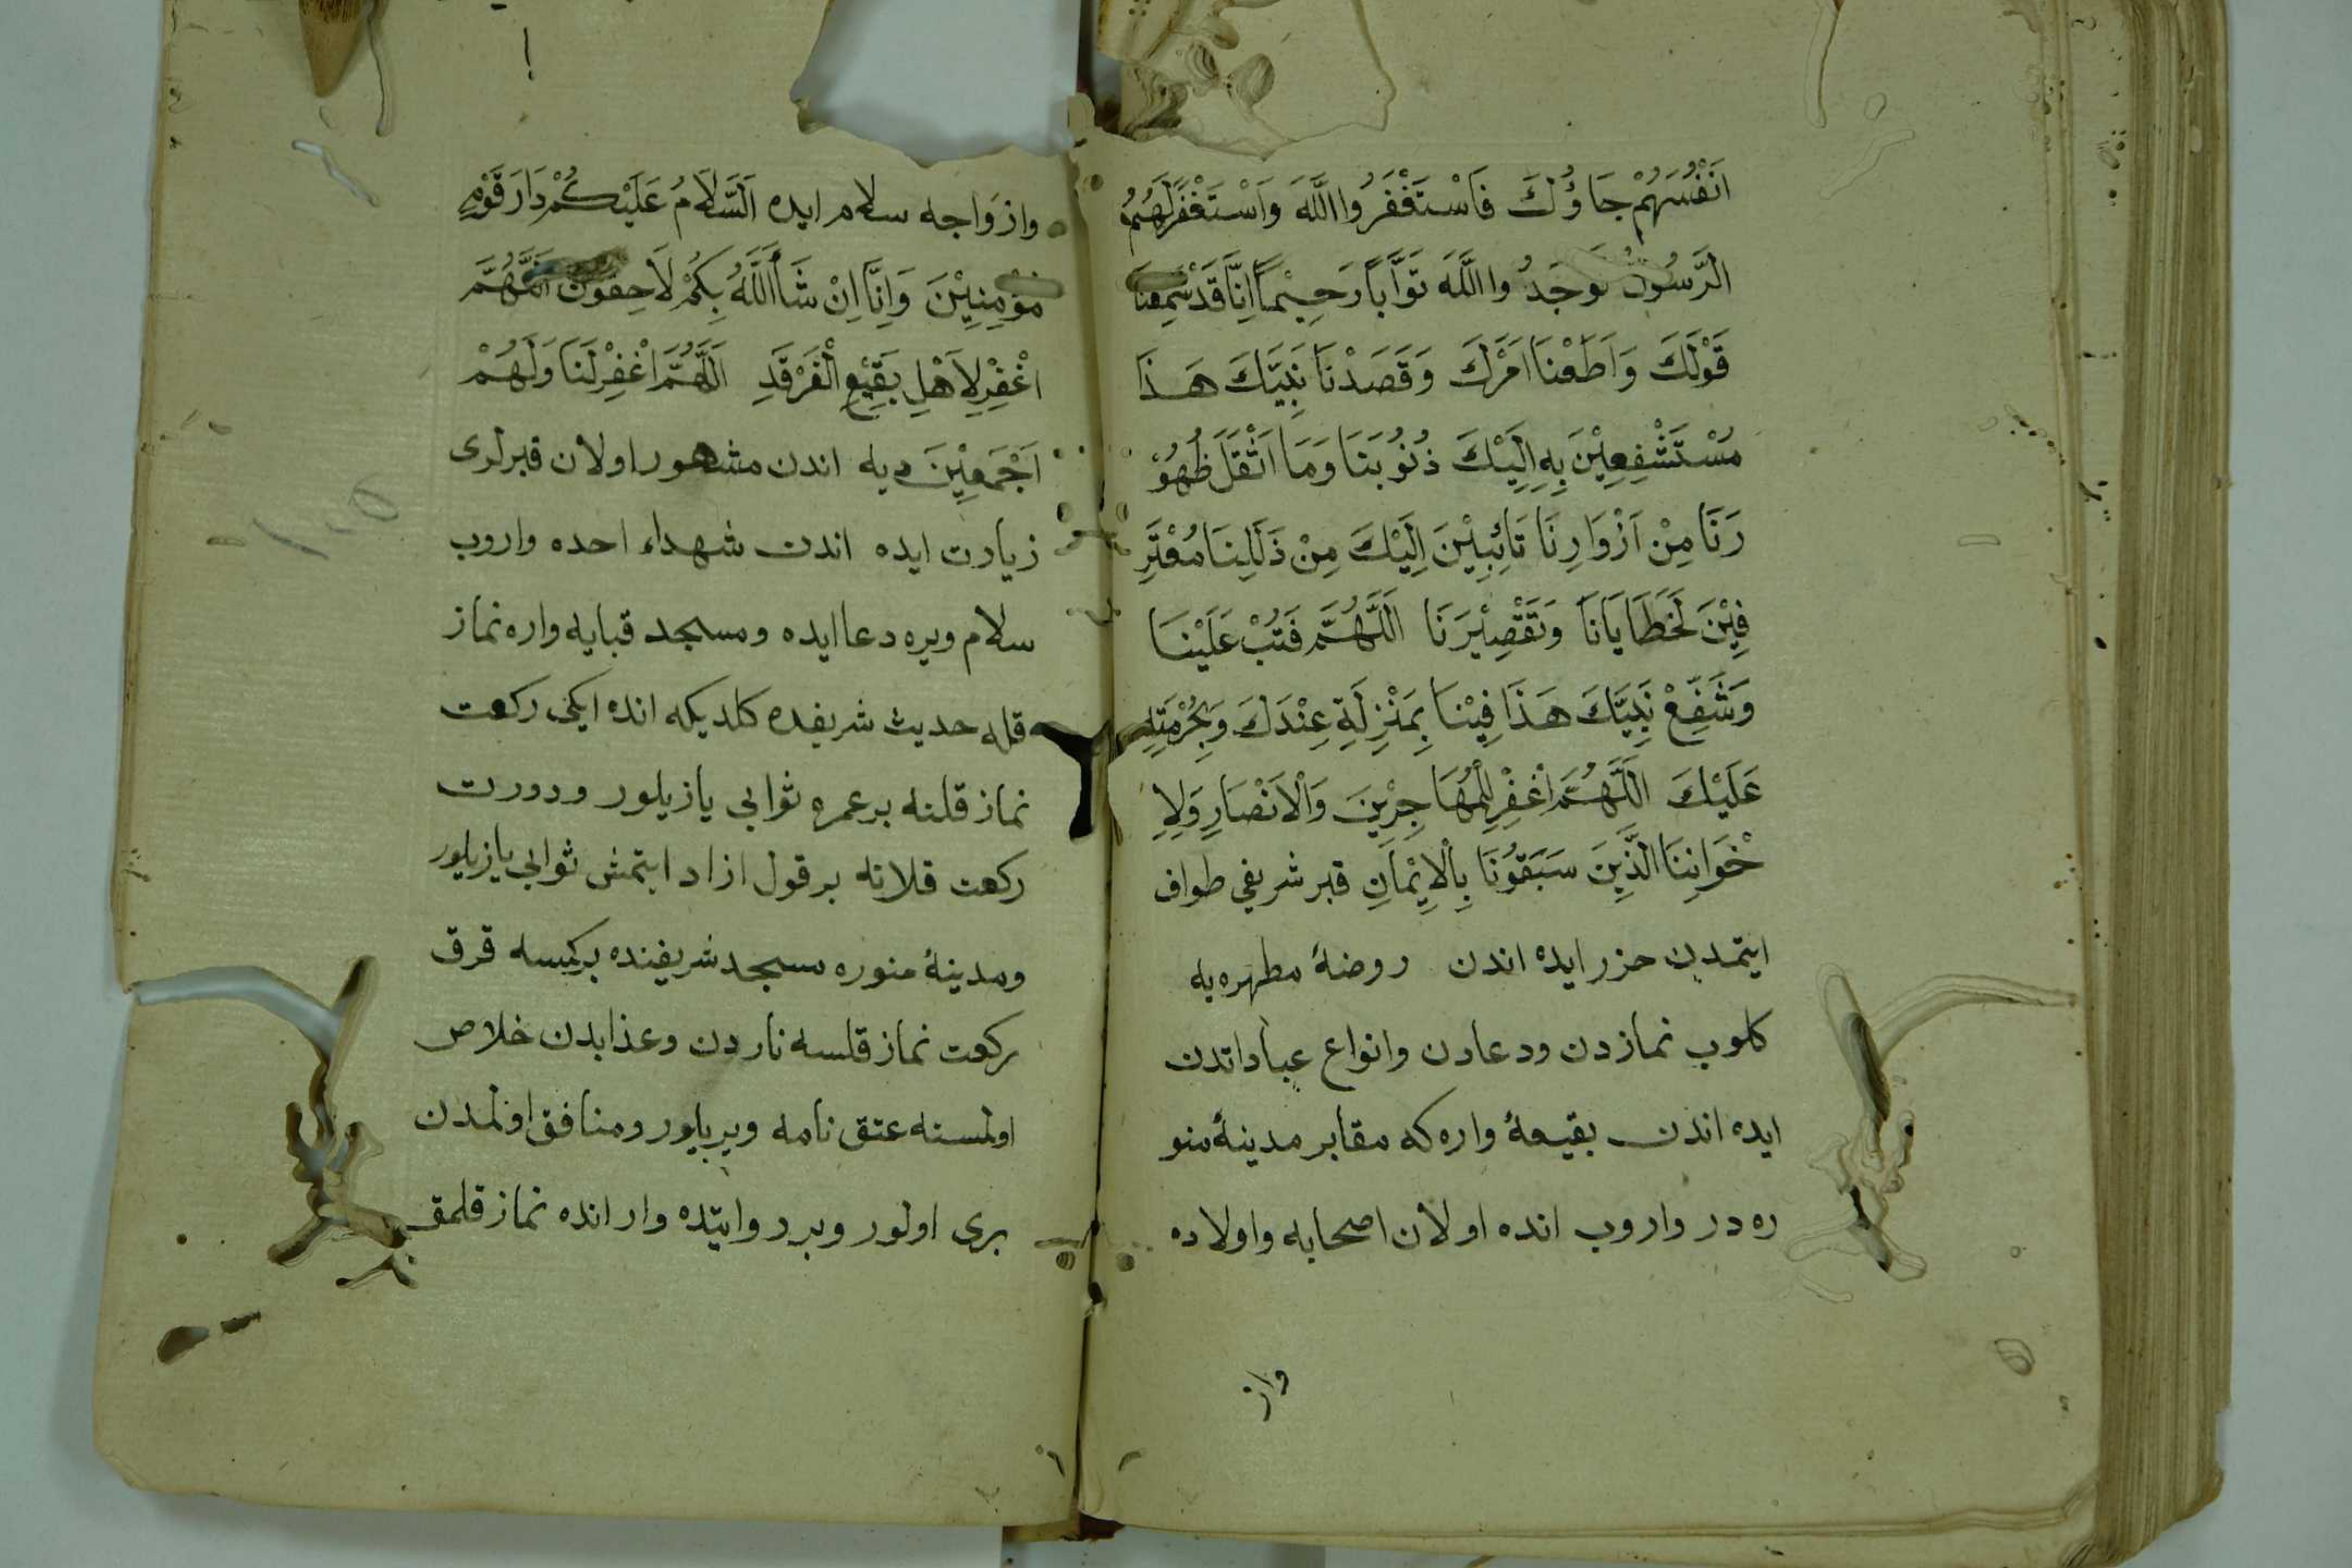 اَنْفُسَهُمْ جَاؤُكَ فَاسْتَغْفَرُوا اللَّهَ وَاسْتَغْفَرَ لَهُمُ
الرَّسُولُ لَوَجَدُوا اللَّهَ تَوَّابًا رَحِيْمًا اِنَّا قَدْ سَمِعْنَا
قَوْلَكَ وَاَطَعْنَا اَمْرَكَ وَقَصَدْنَا نَبِيَّكَ هَذَا
مُسْتَشْفِعِيْنَ بِهِ اِلَيْكَ ذُنُوبَنَا وَمَا اَثْقَلَ ظُهُوْ
رَنَا مِنْ اَزْوَارِنَا تَائِبِيْنَ اِلَيْكَ مِنْ ذَلَلِنَا مُعْتَرِ
فِيْنَ لَخَطَايَانَا وَتَقْصِيْرَنَا اَللَّهُمَّ فَتُبْ عَلَيْنَا
وَشَفِّعْ نَبِيَّكَ هَذَا فِيْنَا بِمَنْزِلَةِ عِنْدَكَ وَبِحُرْمَتِهِ
عَلَيْكَ اَللَّهُمَّ اغْفِرْ لِلْمُهَاجِرِيْنَ وَالْاَنْصَارِ وَلِاِ
خْوَانِنَا الَّذِيْنَ سَبَقُوْنَا بِالْاِيْمَانِ قبر شريفي طواف
ايتمدن حزر ايده اندن روضهٔ مطهره يه
كلوب نمازدن ودعادن وانواع عباداتدن
ايده اندن بقيعهٔ واره كه مقابر مدينهٔ منو
ره در واروب انده اولان اصحابه واولاده
واز
وازواجه سلام ايده اَلسَّلَامُ عَلَيْكُمْ دَارَ قَوْمٍ
مُؤْمِنِيْنَ وَاِنَّا اِنْ شَاَ اللَّهُ بِكُمْ لَاحِقُوْنَ اَللَّهُمَّ
اغْفِرْ لِاَهْلِ بَقِيْعِ الْغَرْقَدِ اَللَّهُمَّ اغْفِرْلَنَا وَلَهُمْ
اَجْمَعِيْنَ ديه اندن مشهور اولان قبرلرى
زيارت ايده اندن شهداء احده واروب
سلام ويره دعا ايده ومسجد قبايه واره نماز
قله حديث شريفده كلديكه انده ايكى ركعت
نماز قلنه بر عمره ثوابى يازيلور ودورت
ركعت قلانه بر قول ازاد ايتمش ثوابى يازيلور
ومدينهٔ منوره مسجد شريفنده بركمسه قرق
ركعت نماز قلسه ناردن وعذابدن خلاص
اولمسنه عتق نامه ويريلور ومنافق اولمدن
برى اولور وبر روايتده وار انده نماز قلمق